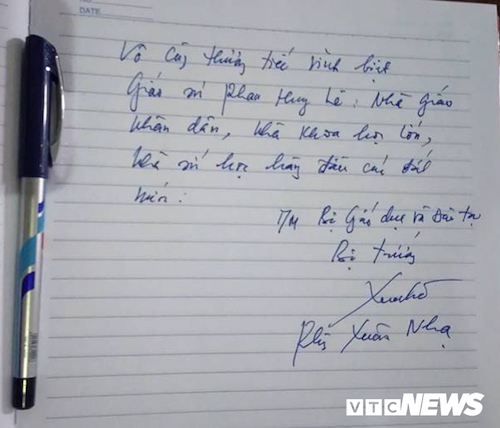 NO
DATE
Vô cùng thương tiếc vĩnh biệt
Giáo sư Phan Huy Lê: Nhà giáo
nhân dân, nhà khoa học lớn,
nhà sử học hàng đầu của đất
nước.
T/M Bộ Giáo dục và Đào tạo
Bộ trưởng
Phùng Xuân Nhạ
VTC NEWS